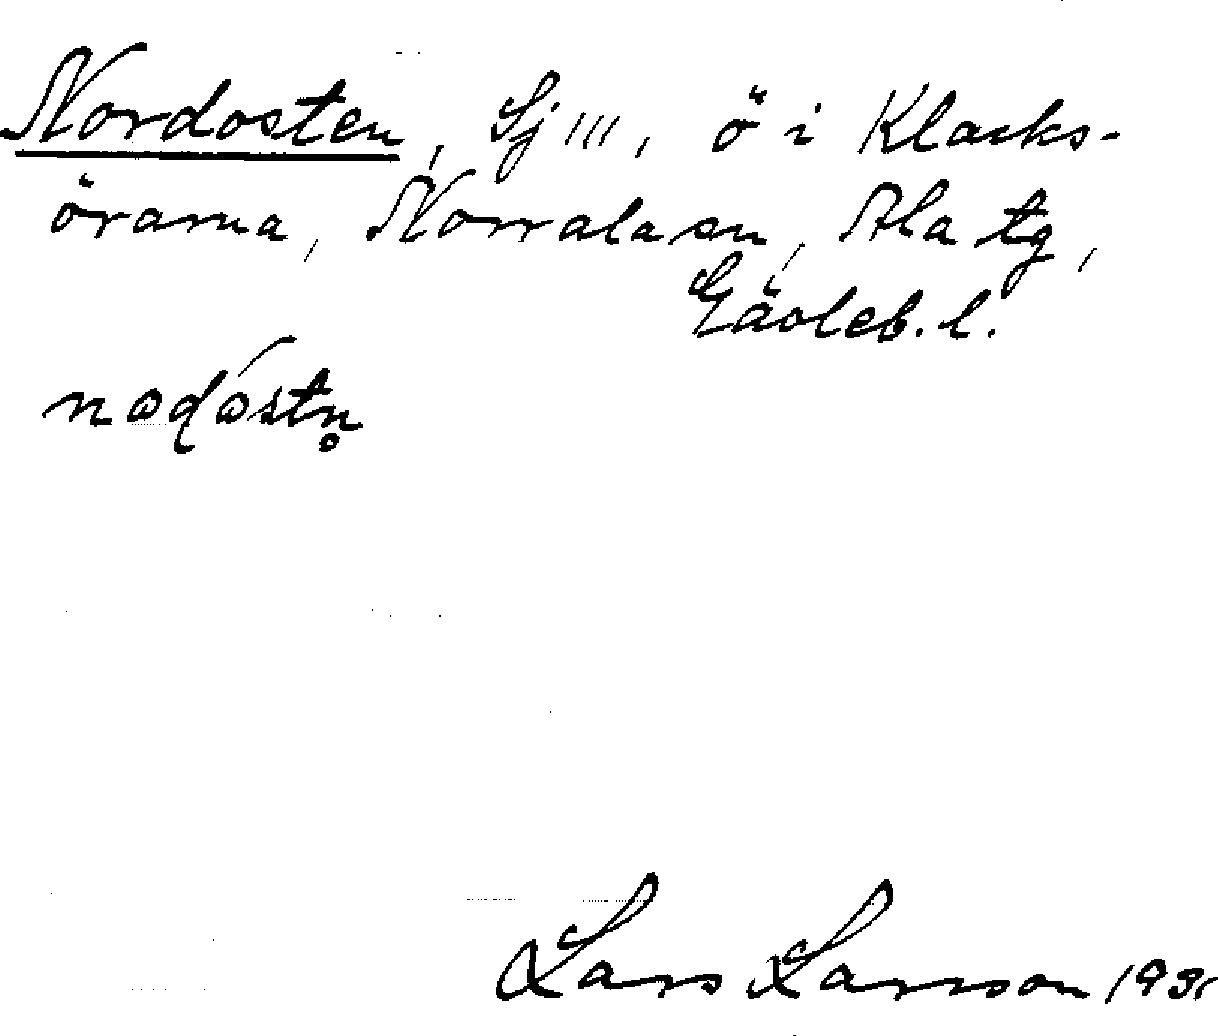 Nordosten, Sj III, ö i Klacks-
örarna, Norrala sn, Ala tg,
Gävleb. l.
nɷdɷ́stn̥
Lars Larsson 1931